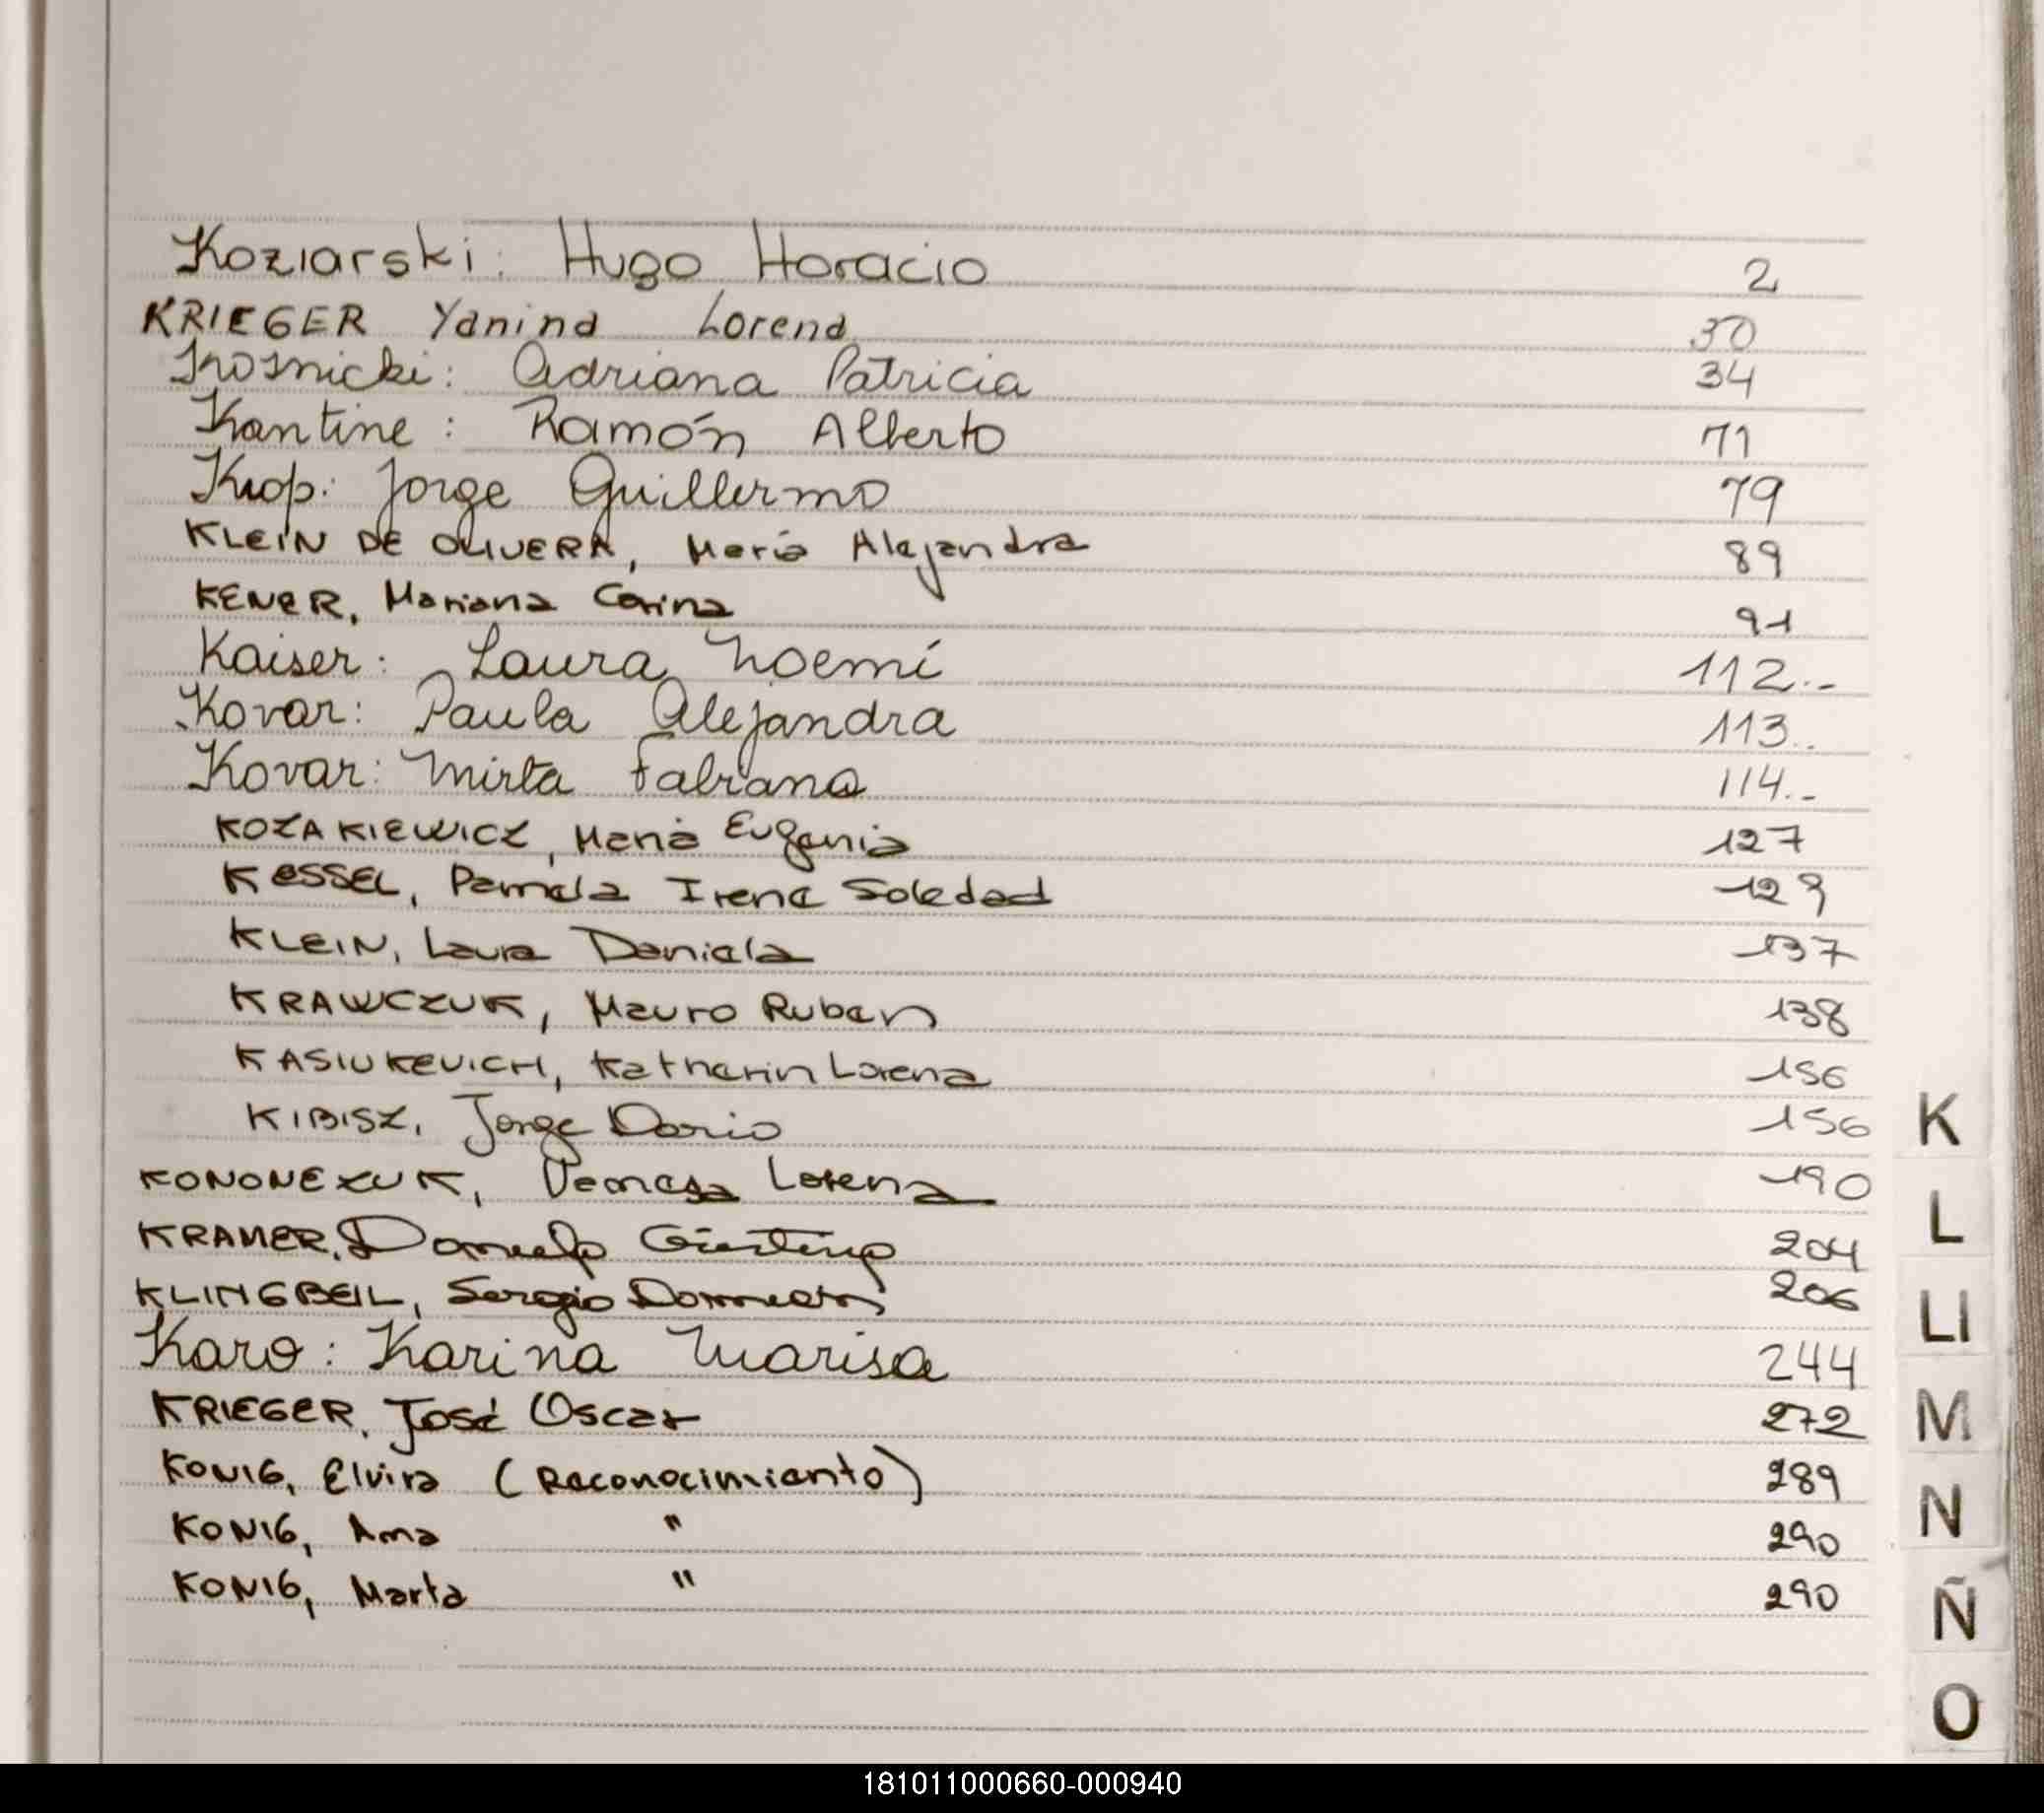 Koziarski: Hugo Horacio 2
KRIEGER Yanina Lorena 30
Kosnicki: Adriana Patricia 34
Kantine: Ramón Alberto 71
Krop: Jorge Guillermo 79
KLEIN DE OLIVERA, María Alejandra 89
KENER, Mariana Carina 91
Kaiser: Laura Noemí 112.-
Kovar: Paula Alejandra 113..
Kovar: Mirta Fabiana 114.-
KOZAKIEWICZ, María Eugenia 127
KESSEL, Pamela Irene Soledad 129
KLEIN, Laura Daniela 137
KRAWCZUK, Mauro Ruben 138
KASIUKEVICH, Katherin Lorena 156
KIBISZ, Jorge Dario 156
KONONEZUK, Lorena 190
KRAMER, 204
KLINGBEIL, Sergio 206
Karo: Karina Marisa 244
KRIEGER, José Oscar 272
KONIG, Elvira (Reconocimiento) 289
KONIG, Ana " 290
KONIG, Marta " 290
K
L
Ll
M
N
Ñ
O
181011000660-000940